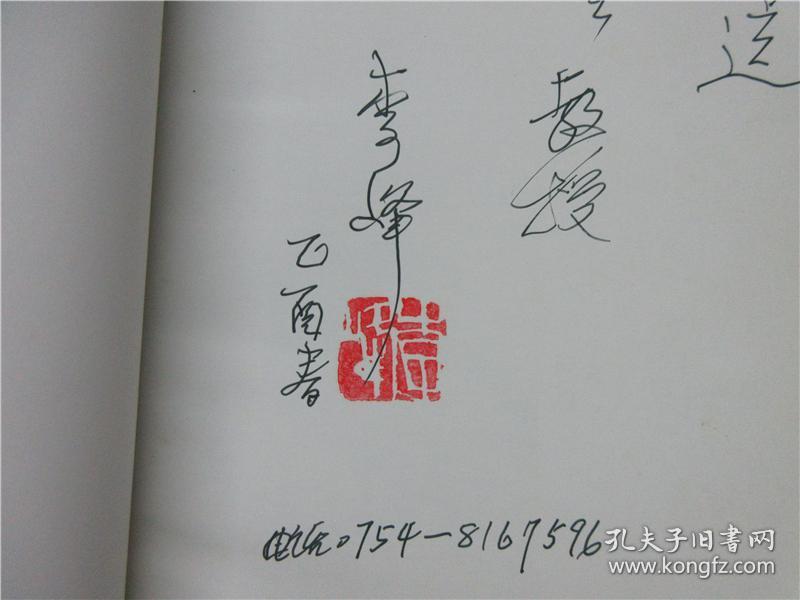 教授
李峰
乙酉春
电话0754-8167596
孔夫子旧书网
www.kongfz.com